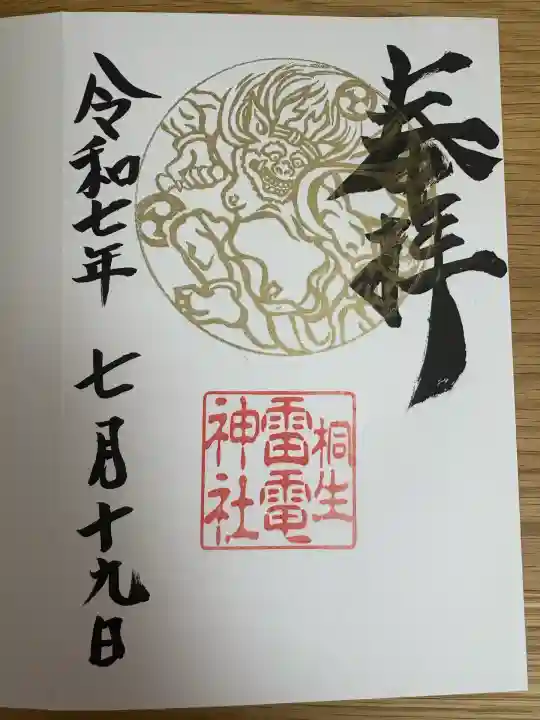 奉拝
桐生
雷電
神社
令和七年 七月十九日